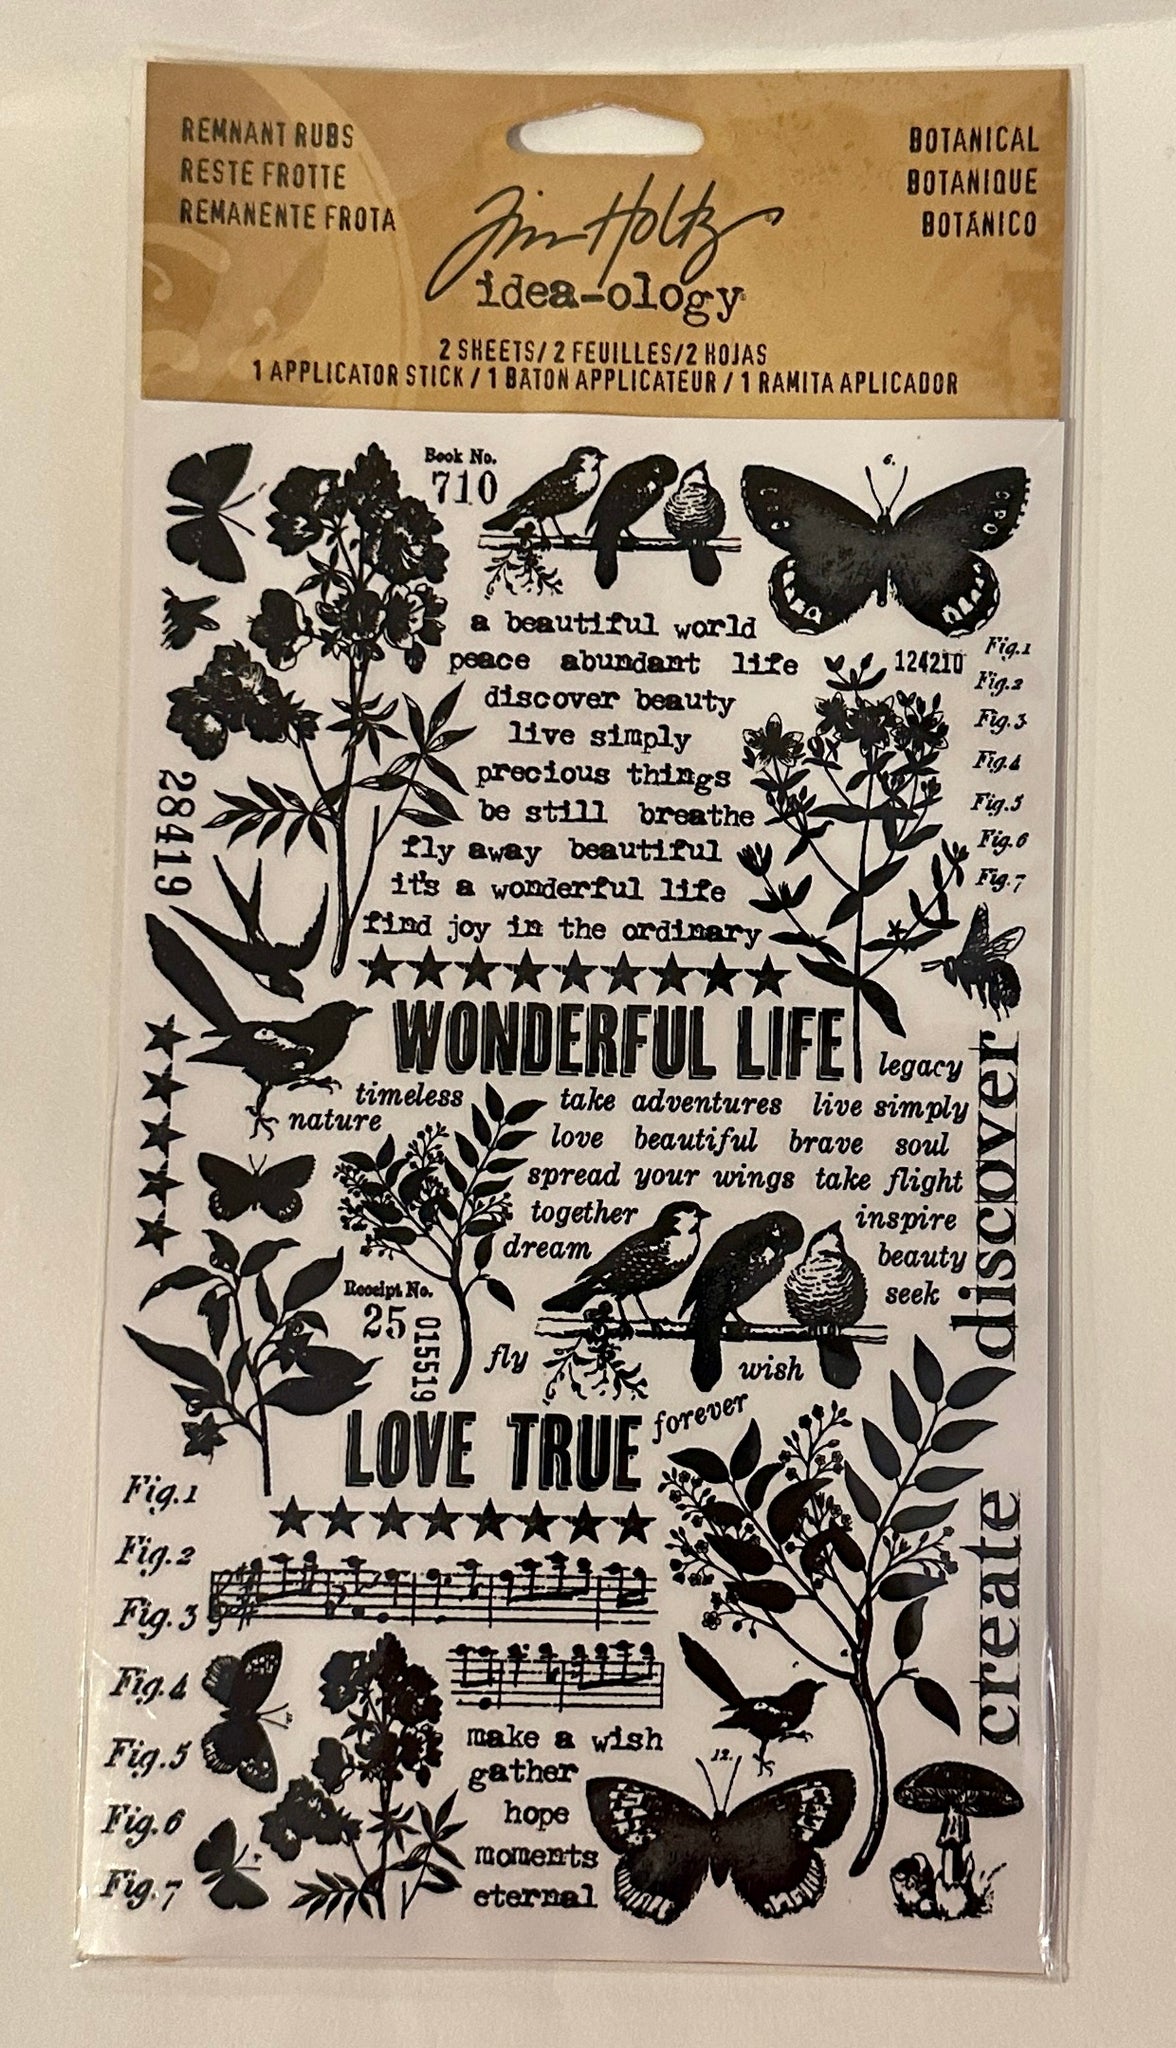 REMNANT RUBS
RESTE FROTTE
REMANENTE FROTA
BOTANICAL
BOTANIQUE
BOTÁNICO
Tim Holtz
idea-ology
2 SHEETS/ 2 FEUILLES/2 HOJAS
1 APPLICATOR STICK / 1 BÂTON APPLICATEUR / 1 RAMITA APLICADOR
Book No.
710
6.
a beautiful world
peace abundant life
discover beauty
live simply
precious things
be still breathe
fly away beautiful
it's a wonderful life
find joy in the ordinary
124210
Fig.1
Fig.2
Fig.3
Fig.4
Fig.5
Fig.6
Fig.7
28419
WONDERFUL LIFE
legacy
timeless
nature
take adventures live simply
love beautiful brave soul
spread your wings take flight
together
dream
inspire
beauty
seek
discover
Receipt No.
25
015519
fly
wish
forever
LOVE TRUE
create
Fig.1
Fig.2
Fig.3
Fig.4
Fig.5
Fig.6
Fig.7
make a wish
gather
hope
moments
eternal
12.